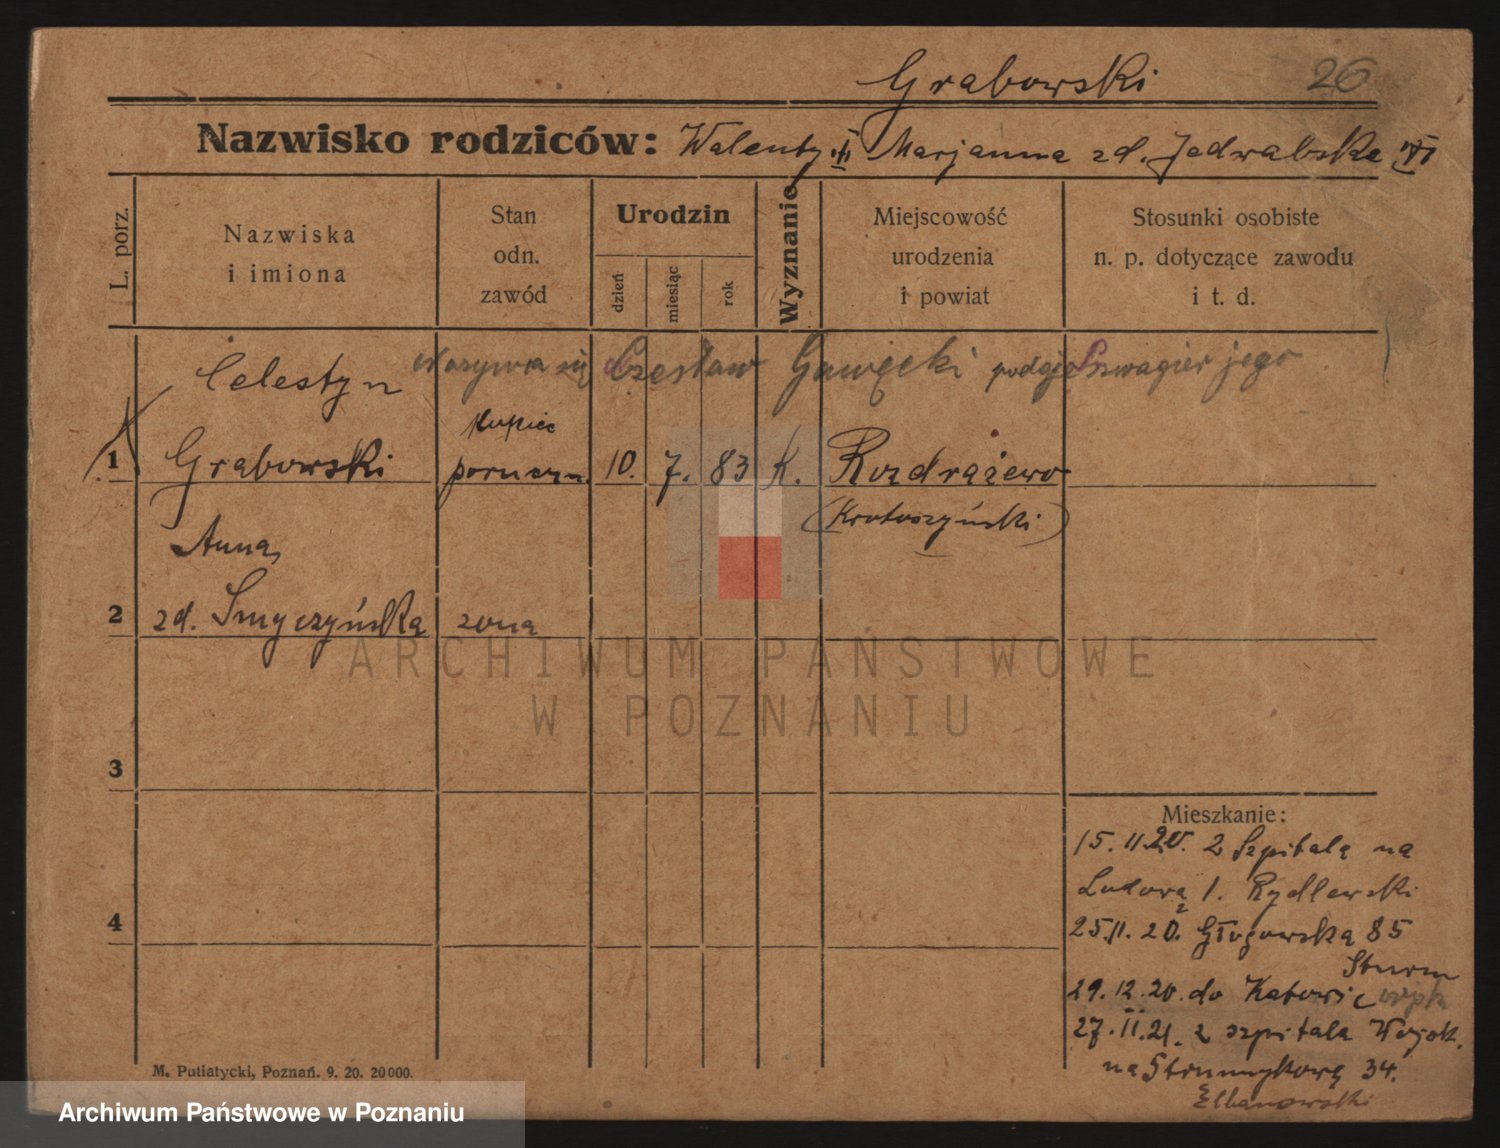 Grabowski 26
Nazwisko rodziców: Walenty Marjanna zd. Jedwabska
L. porz.
Nazwiska
i imiona
Stan
odn.
zawód
Urodzin
dzień
miesiąc
rok
Wyznanie
Miejscowość
urodzenia
i powiat
Stosunki osobiste
n. p. dotyczące zawodu
i t. d.
Nazywa się Czesław Gawęcki podaje Szwagier jego
Celestyn
kupiec
1 Grabowski 10. 7. 83 K. Rozdrażewo
(Krotoszyński)
Anna
2 zd. Smyczyńska żona
3
4
Mieszkanie:
15.11.20. z Szpitala na
1. Rydlewski
25.11.20. Głogowska 85
Sturm
29.12.20. do Katowic
27.II.21. z szpitala Wojsk.
na Strumykową 34.
Elbanowski
M. Putiatycki, Poznań. 9. 20. 20000.
ARCHIWUM PAŃSTWOWE
W POZNANIU
Archiwum Państwowe w Poznaniu